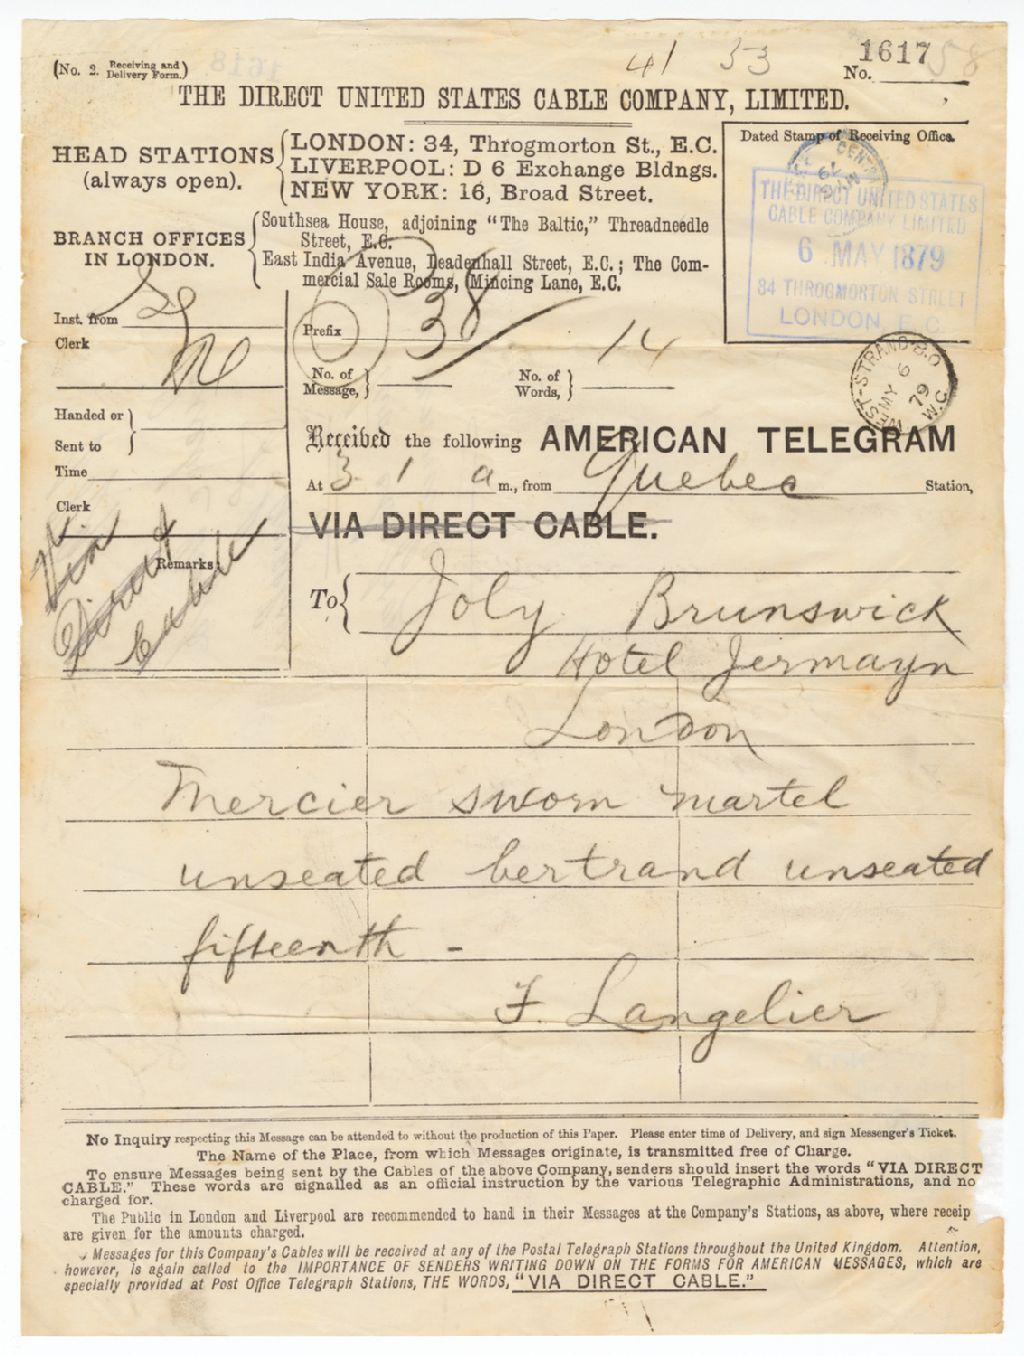 (No. 2. Receiving and Delivery Form.)
41 33 58
No. 1617
THE DIRECT UNITED STATES CABLE COMPANY, LIMITED.
HEAD STATIONS (always open).
LONDON: 34, Throgmorton St., E.C.
LIVERPOOL: D 6 Exchange Bldngs.
NEW YORK: 16, Broad Street.
BRANCH OFFICES IN LONDON.
Southsea House, adjoining "The Baltic," Threadneedle
Street, E.C.
East India Avenue, Leadenhall Street, E.C.; The Com-
mercial Sale Rooms, Mincing Lane, E.C.
Dated Stamp of Receiving Office.
THE DIRECT UNITED STATES
CABLE COMPANY LIMITED
6 MAY 1879
34 THROGMORTON STREET
LONDON E.C.
WEST-STRAND B.O. W.C.
MY 6
79
Inst. from
Clerk
Prefix 38
14
No. of Message,
No. of Words,
Handed or
Sent to
Time
Clerk
Remarks
Via
Direct
Cable
Received the following AMERICAN TELEGRAM
At 3 1 a m., from Quebec Station,
VIA DIRECT CABLE.
To Joly Brunswick
Hotel Jermayn
London
Mercier sworn martel
unseated bertrand unseated
fifteenth -
F. Langelier
No Inquiry respecting this Message can be attended to without the production of this Paper. Please enter time of Delivery, and sign Messenger's Ticket.
The Name of the Place, from which Messages originate, is transmitted free of Charge.
To ensure Messages being sent by the Cables of the above Company, senders should insert the words "VIA DIRECT
CABLE." These words are signalled as an official instruction by the various Telegraphic Administrations, and no
charged for.
The Public in London and Liverpool are recommended to hand in their Messages at the Company's Stations, as above, where receip
are given for the amounts charged.
Messages for this Company's Cables will be received at any of the Postal Telegraph Stations throughout the United Kingdom. Attention,
however, is again called to the IMPORTANCE OF SENDERS WRITING DOWN ON THE FORMS FOR AMERICAN MESSAGES, which are
specially provided at Post Office Telegraph Stations, THE WORDS, "VIA DIRECT CABLE."